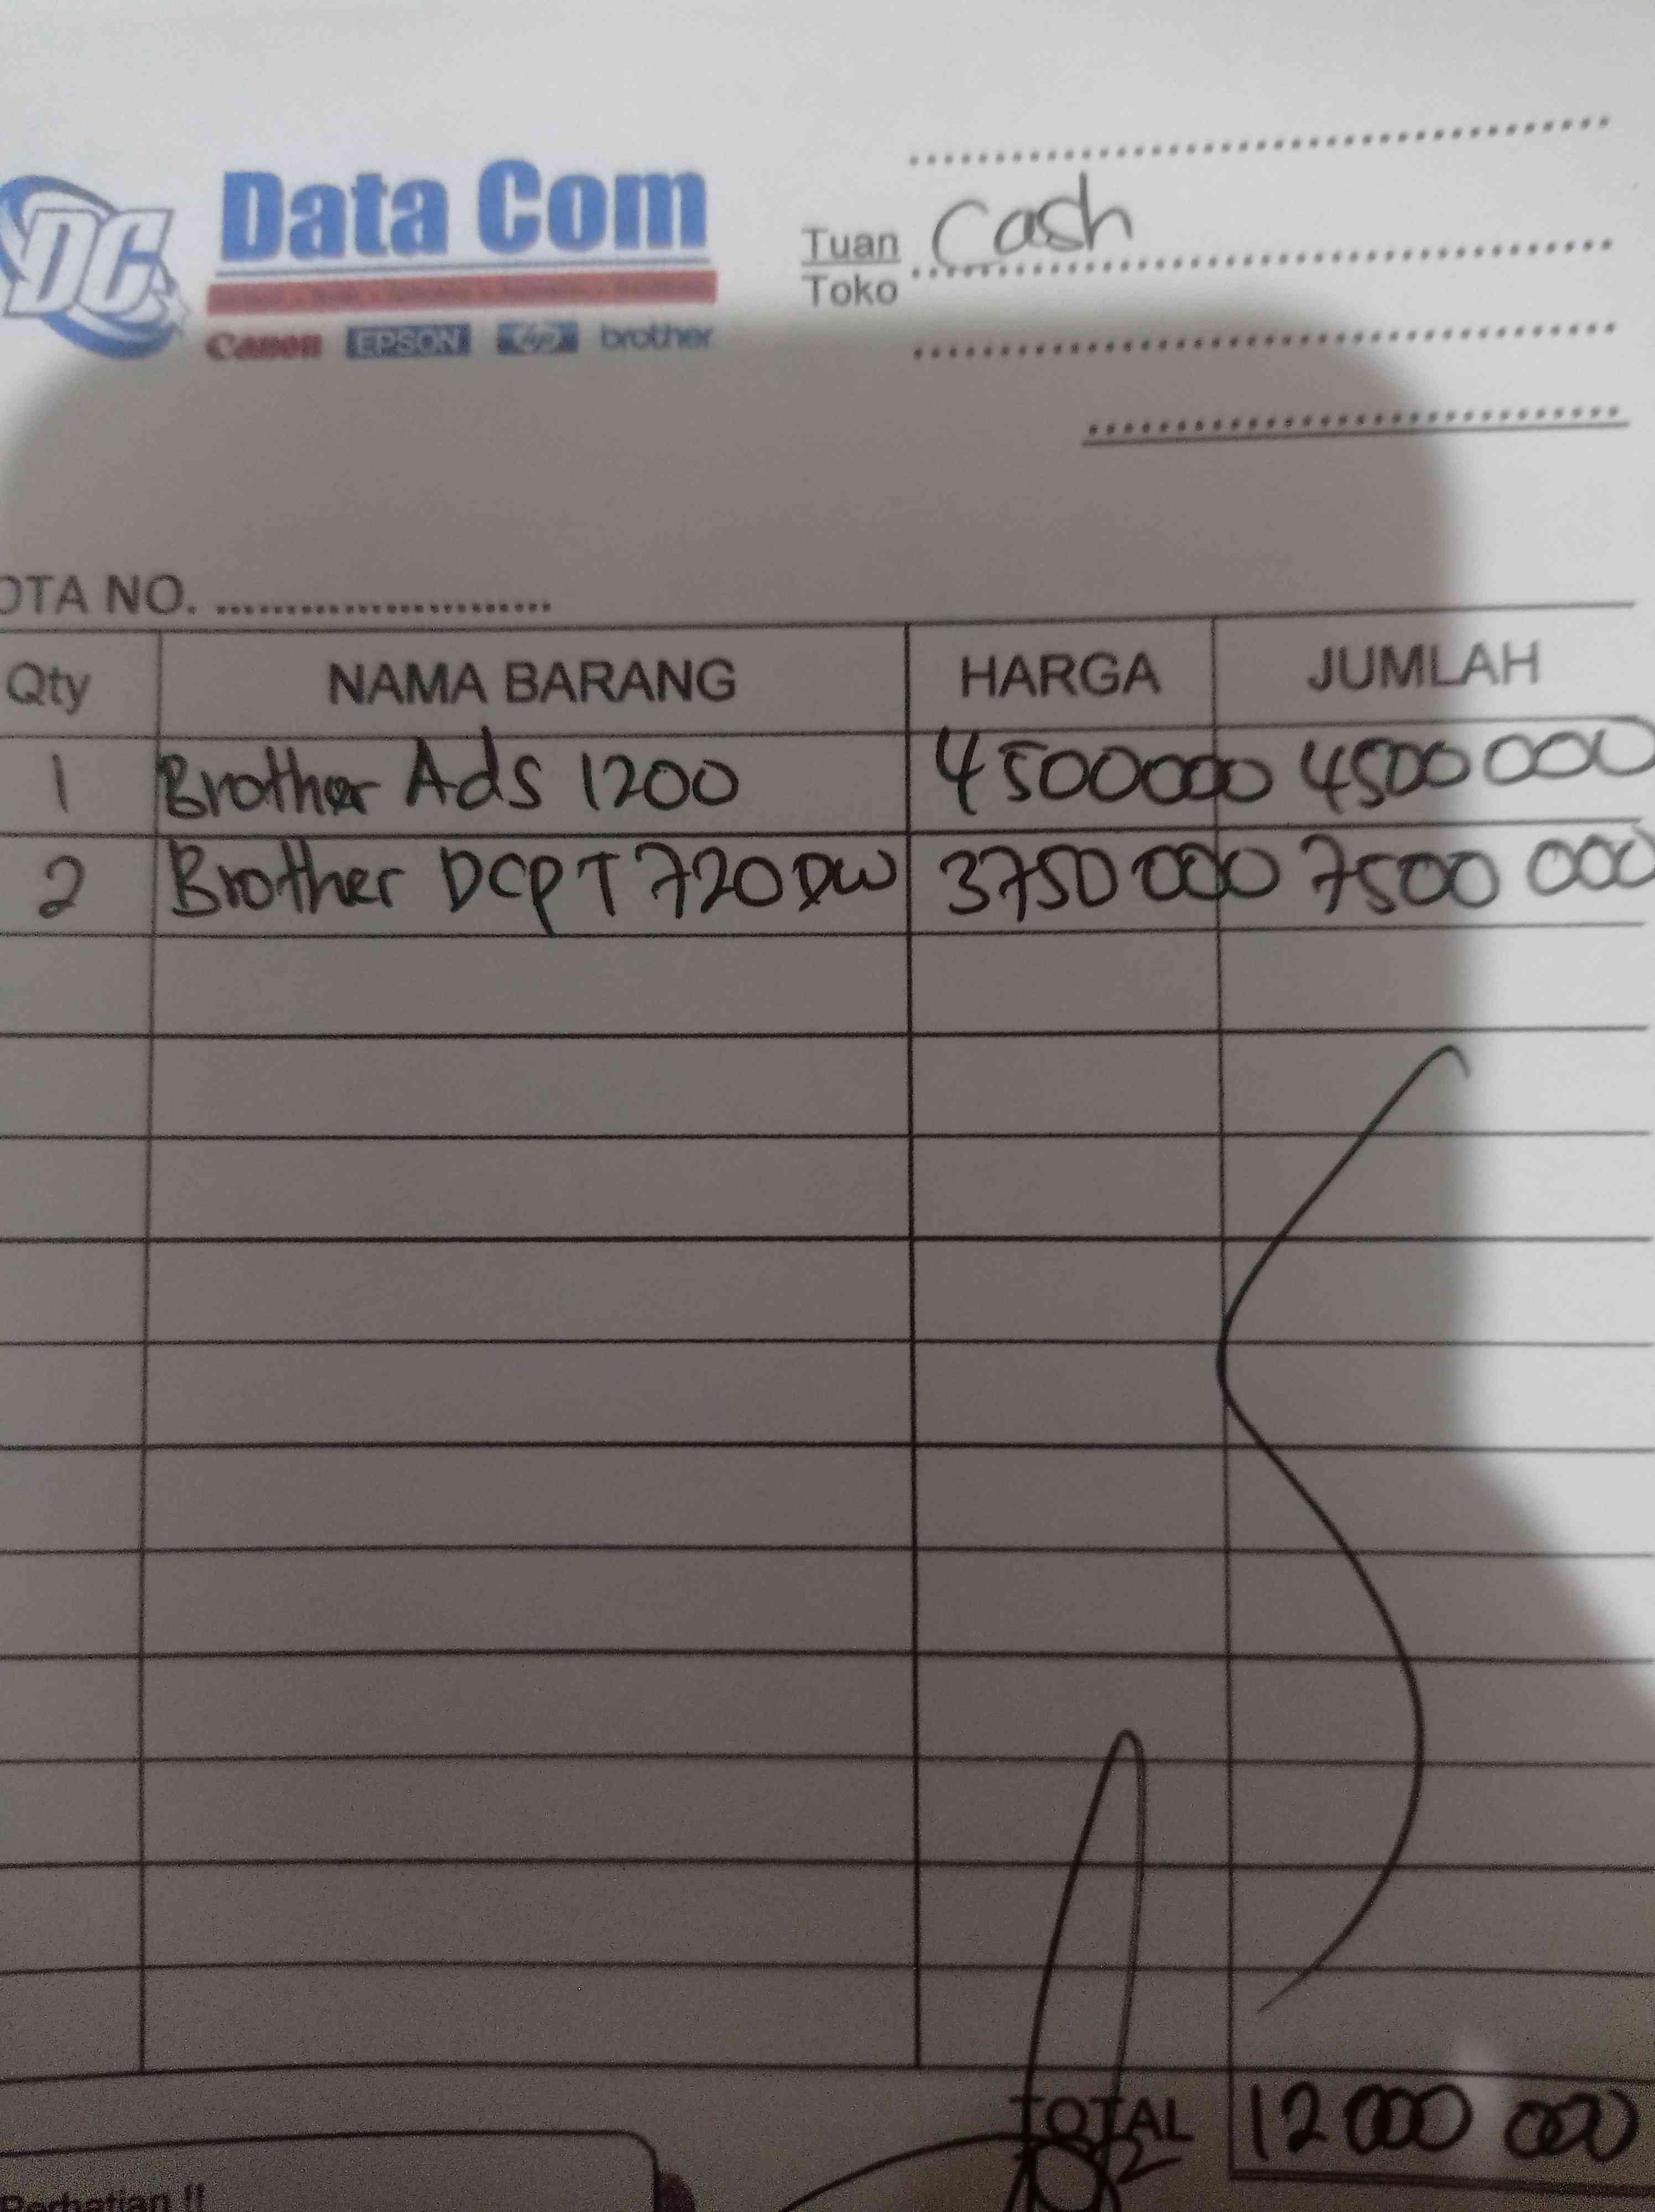 DC
Data Com
Canon EPSON hp brother
Tuan Cash
Toko
OTA NO.
Qty NAMA BARANG HARGA JUMLAH
1 Brother Ads 1200 4500000 4500 000
2 Brother DCP T720DW 3750 000 7500 000
TOTAL 12 000 000
Perhatian !!